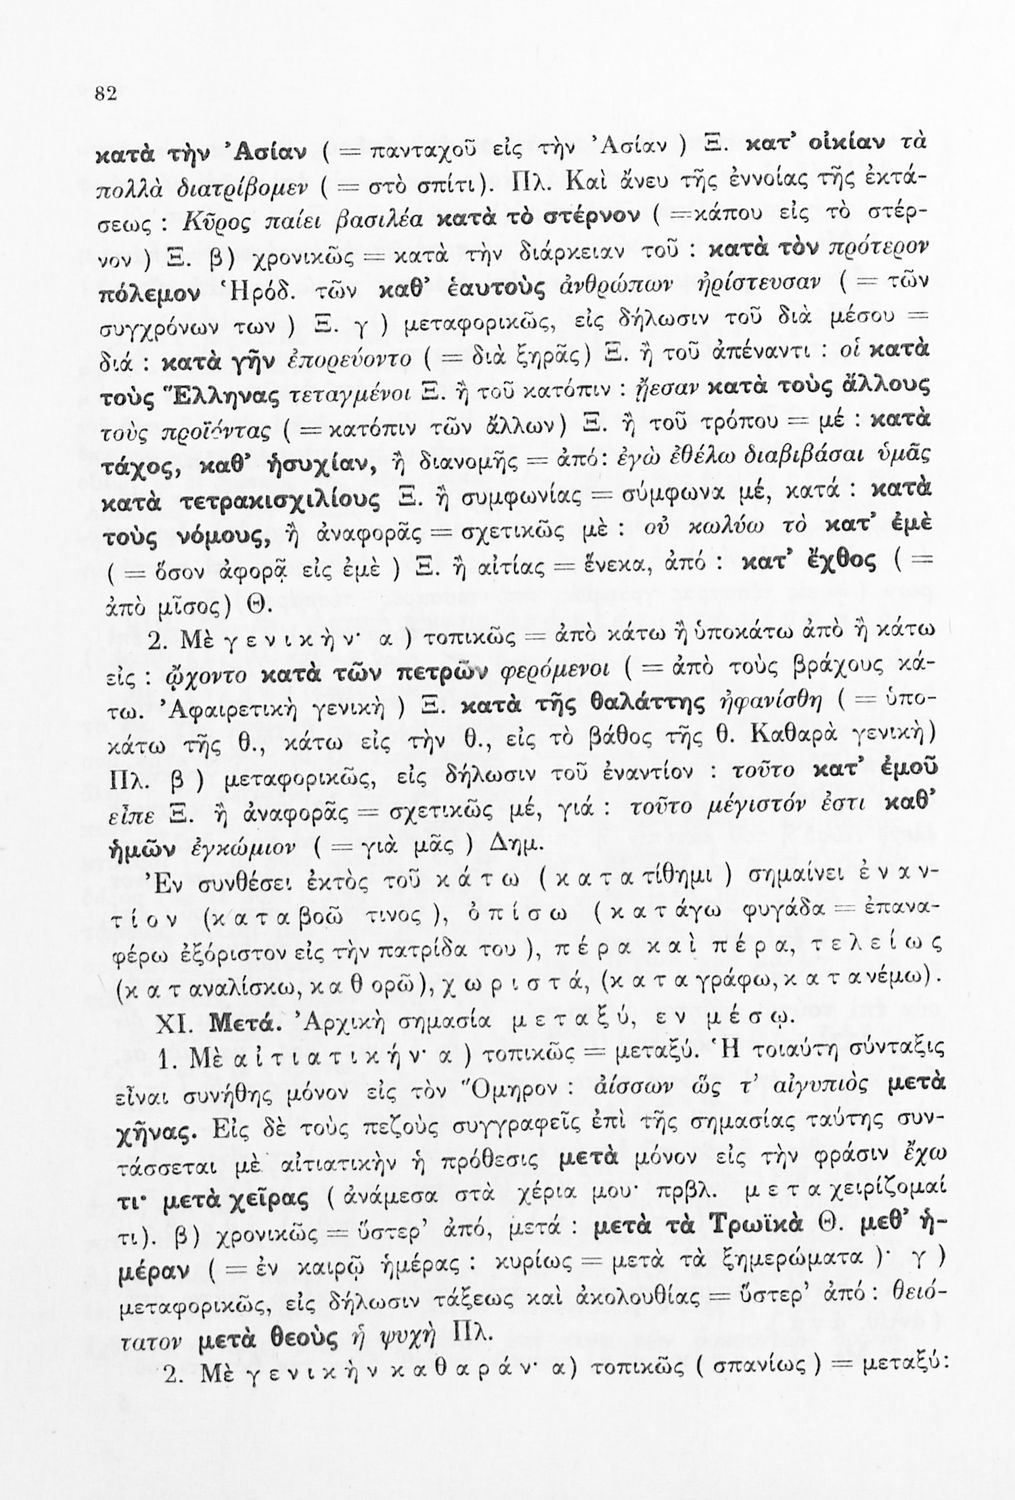 82
κατὰ τὴν Ἀσίαν ( = πανταχοῦ εἰς τὴν Ἀσίαν ) Ξ. κατ’ οἰκίαν τὰ
πολλὰ διατρίβομεν ( = στὸ σπίτι). Πλ. Καὶ ἄνευ τῆς ἐννοίας τῆς ἐκτά-
σεως : Κῦρος παίει βασιλέα κατὰ τὸ στέρνον ( =κάπου εἰς τὸ στέρ-
νον ) Ξ. β) χρονικῶς = κατὰ τὴν διάρκειαν τοῦ : κατὰ τὸν πρότερον
πόλεμον Ἡρόδ. τῶν καθ’ ἑαυτοὺς ἀνθρώπων ἠρίστευσαν ( = τῶν
συγχρόνων των ) Ξ. γ ) μεταφορικῶς, εἰς δήλωσιν τοῦ διὰ μέσου =
διά : κατὰ γῆν ἐπορεύοντο ( = διὰ ξηρᾶς) Ξ. ἢ τοῦ ἀπέναντι : οἱ κατὰ
τοὺς Ἕλληνας τεταγμένοι Ξ. ἢ τοῦ κατόπιν : ᾔεσαν κατὰ τοὺς ἄλλους
τοὺς προϊόντας ( = κατόπιν τῶν ἄλλων) Ξ. ἢ τοῦ τρόπου = μέ : κατὰ
τάχος, καθ’ ἡσυχίαν, ἢ διανομῆς = ἀπό: ἐγὼ ἐθέλω διαβιβάσαι ὑμᾶς
κατὰ τετρακισχιλίους Ξ. ἢ συμφωνίας = σύμφωνα μέ, κατά : κατὰ
τοὺς νόμους, ἢ ἀναφορᾶς = σχετικῶς μὲ : οὐ κωλύω τὸ κατ’ ἐμὲ
( = ὅσον ἀφορᾷ εἰς ἐμὲ ) Ξ. ἢ αἰτίας = ἕνεκα, ἀπό : κατ’ ἔχθος ( =
ἀπὸ μῖσος) Θ.
2. Μὲ γ ε ν ι κ ὴ ν· α ) τοπικῶς = ἀπὸ κάτω ἢ ὑποκάτω ἀπὸ ἢ κάτω
εἰς : ᾤχοντο κατὰ τῶν πετρῶν φερόμενοι ( = ἀπὸ τοὺς βράχους κά-
τω. Ἀφαιρετικὴ γενικὴ ) Ξ. κατὰ τῆς θαλάττης ἠφανίσθη ( = ὑπο-
κάτω τῆς θ., κάτω εἰς τὴν θ., εἰς τὸ βάθος τῆς θ. Καθαρὰ γενικὴ)
Πλ. β ) μεταφορικῶς, εἰς δήλωσιν τοῦ ἐναντίον : τοῦτο κατ’ ἐμοῦ
εἶπε Ξ. ἢ ἀναφορᾶς = σχετικῶς μέ, γιά : τοῦτο μέγιστόν ἐστι καθ’
ἡμῶν ἐγκώμιον ( = γιὰ μᾶς ) Δημ.
Ἐν συνθέσει ἐκτὸς τοῦ κ ά τ ω ( κ α τ α τίθημι ) σημαίνει ἐ ν α ν-
τ ί ο ν (κ α τ α βοῶ τινος ), ὀ π ί σ ω ( κ α τ άγω φυγάδα = ἐπανα-
φέρω ἐξόριστον εἰς τὴν πατρίδα του ), π έ ρ α κ α ὶ π έ ρ α, τ ε λ ε ί ω ς
(κ α τ αναλίσκω, κ α θ ορῶ), χ ω ρ ι σ τ ά, (κ α τ α γράφω, κ α τ ανέμω).
XI. Μετά. Ἀρχικὴ σημασία μ ε τ α ξ ύ, ε ν μ έ σ ῳ.
1. Μὲ α ἰ τ ι α τ ι κ ή ν· α ) τοπικῶς = μεταξύ. Ἡ τοιαύτη σύνταξις
εἶναι συνήθης μόνον εἰς τὸν Ὅμηρον : ἀίσσων ὥς τ’ αἰγυπιὸς μετὰ
χῆνας. Εἰς δὲ τοὺς πεζοὺς συγγραφεῖς ἐπὶ τῆς σημασίας ταύτης συν-
τάσσεται μὲ αἰτιατικὴν ἡ πρόθεσις μετὰ μόνον εἰς τὴν φράσιν ἔχω
τι· μετὰ χεῖρας ( ἀνάμεσα στὰ χέρια μου· πρβλ. μ ε τ α χειρίζομαί
τι). β) χρονικῶς = ὕστερ’ ἀπό, μετά : μετὰ τὰ Τρωϊκὰ Θ. μεθ’ ἡ-
μέραν ( = ἐν καιρῷ ἡμέρας : κυρίως = μετὰ τὰ ξημερώματα )· γ )
μεταφορικῶς, εἰς δήλωσιν τάξεως καὶ ἀκολουθίας = ὕστερ’ ἀπό : θειό-
τατον μετὰ θεοὺς ἡ ψυχὴ Πλ.
2. Μὲ γ ε ν ι κ ὴ ν κ α θ α ρ ά ν· α) τοπικῶς ( σπανίως ) = μεταξύ: